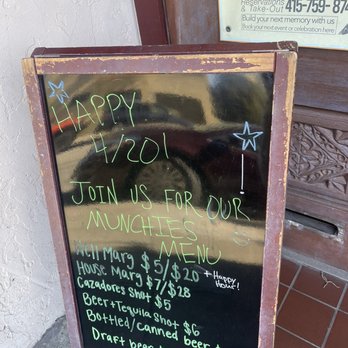 Reservations
& Take-Out
415-759-874
Build your next memory with us
Book your next event or celebration here
HAPPY
4/20!
JOIN US FOR OUR
MUNCHIES
MENU
Well Marg $5/$20
+ Happy
Hour!
House Marg $7/$28
Cazadores Shot $5
Beer + Tequila Shot $6
Bottled/canned beer
Draft